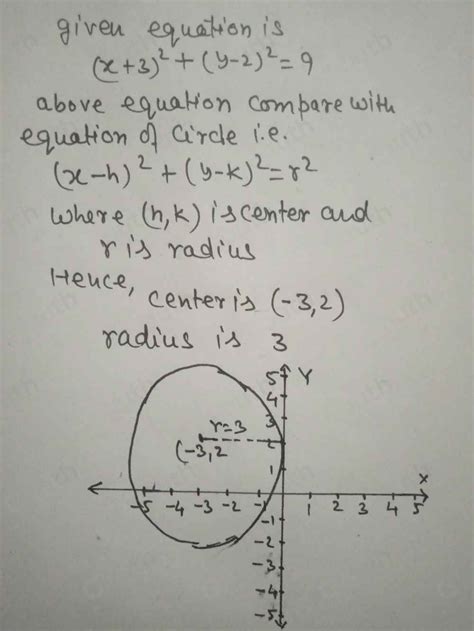 given equation is
(x+3)²+(y-2)²=9
above equation compare with
equation of circle i.e.
(x-h)²+(y-k)²=r²
where (h,k) is center and
r is radius
Hence, center is (-3,2)
radius is 3
5 Y
4
3
r=3
2
(-3,2
1
X
-5 -4 -3 -2 -1 1 2 3 4 5
-1
-2
-3
-4
-5